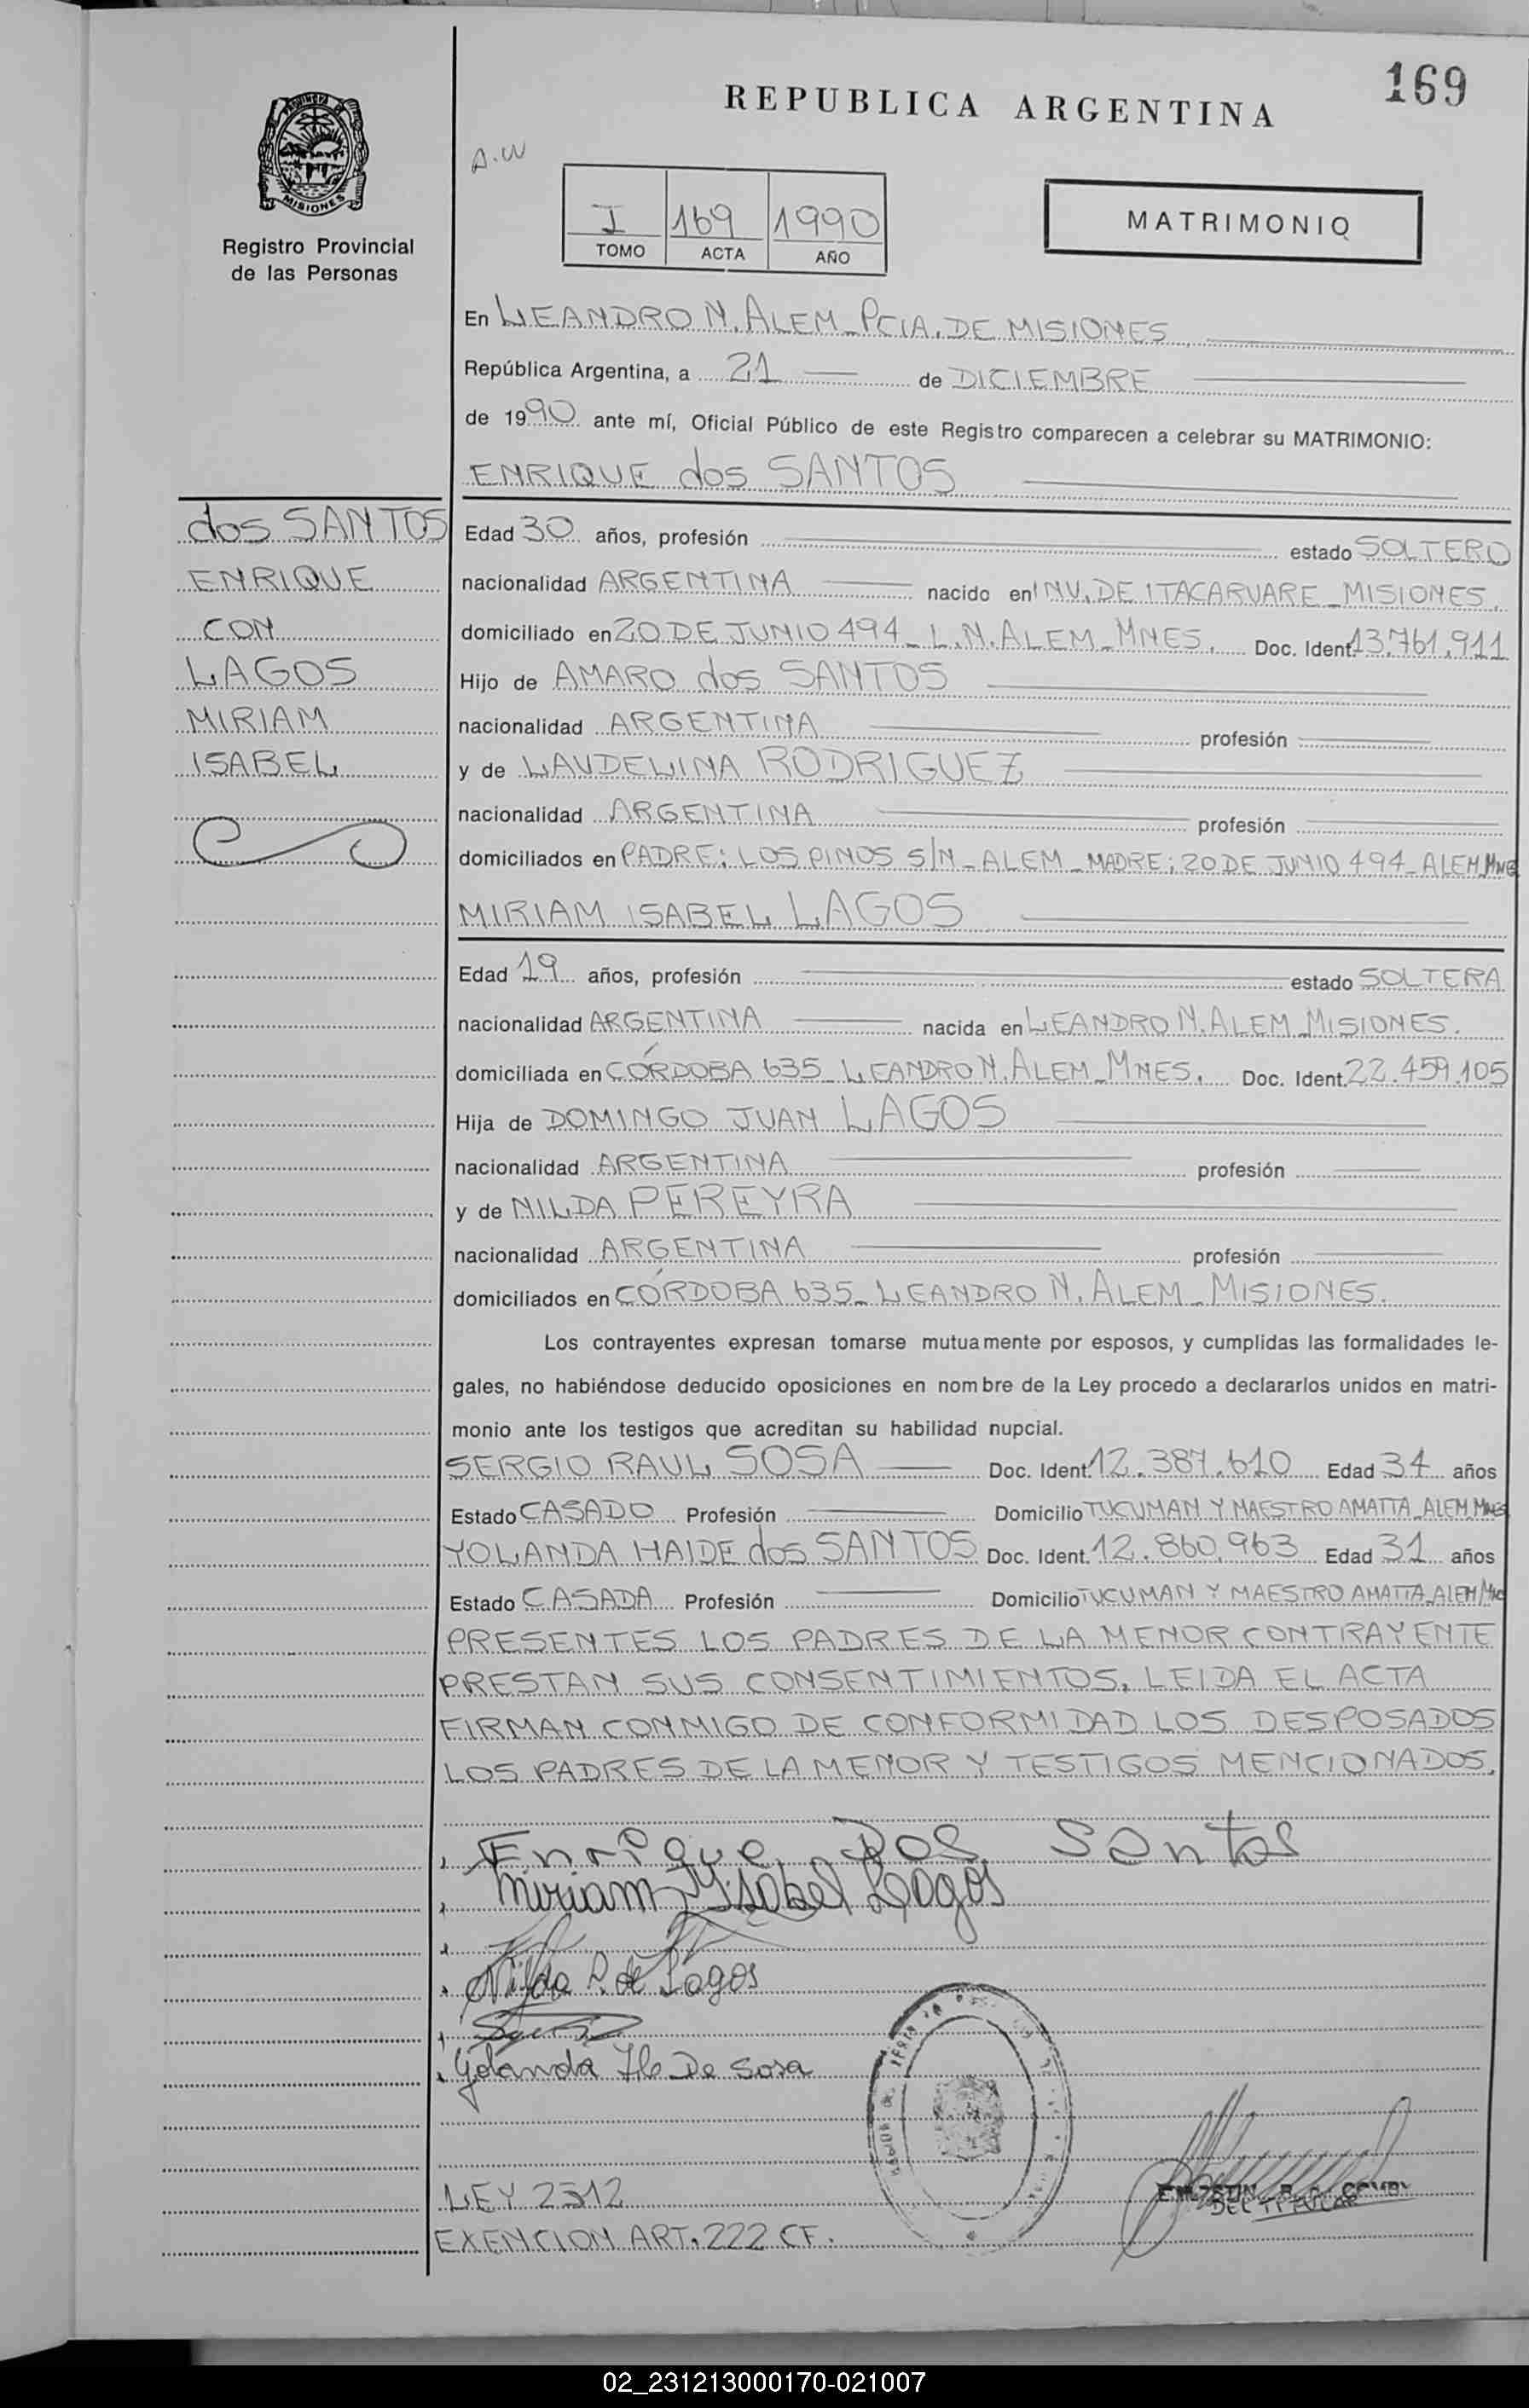 169
REPUBLICA ARGENTINA
PROVINCIA DE
MISIONES
Registro Provincial
de las Personas
A.W
I 169 1990
TOMO ACTA AÑO
MATRIMONIO
En LEANDRO N. ALEM_PCIA. DE MISIONES
República Argentina, a 21 de DICIEMBRE
de 1990 ante mí, Oficial Público de este Registro comparecen a celebrar su MATRIMONIO:
ENRIQUE dos SANTOS
dos SANTOS
ENRIQUE
CON
LAGOS
MIRIAM
ISABEL
Edad 30 años, profesión estado SOLTERO
nacionalidad ARGENTINA nacido en INV. DE ITACARUARE_MISIONES.
domiciliado en 20 DE JUNIO 494_L.N. ALEM_MNES. Doc. Ident. 13.761.911
Hijo de AMARO dos SANTOS
nacionalidad ARGENTINA profesión
y de LAUDELINA RODRIGUEZ
nacionalidad ARGENTINA profesión
domiciliados en PADRE: LOS PINOS S/N_ALEM_MADRE: 20 DE JUNIO 494_ALEM_MNES
MIRIAM ISABEL LAGOS
Edad 19 años, profesión estado SOLTERA
nacionalidad ARGENTINA nacida en LEANDRO N. ALEM_MISIONES.
domiciliada en CÓRDOBA 635_LEANDRO N. ALEM_MNES. Doc. Ident. 22.459.105
Hija de DOMINGO JUAN LAGOS
nacionalidad ARGENTINA profesión
y de NILDA PEREYRA
nacionalidad ARGENTINA profesión
domiciliados en CÓRDOBA 635_LEANDRO N. ALEM_MISIONES.
Los contrayentes expresan tomarse mutuamente por esposos, y cumplidas las formalidades le-
gales, no habiéndose deducido oposiciones en nombre de la Ley procedo a declararlos unidos en matri-
monio ante los testigos que acreditan su habilidad nupcial.
SERGIO RAUL SOSA Doc. Ident. 12.387.610 Edad 34 años
Estado CASADO Profesión Domicilio TUCUMAN Y MAESTRO AMATTA_ALEM MNES
YOLANDA HAIDE dos SANTOS Doc. Ident. 12.860.963 Edad 31 años
Estado CASADA Profesión Domicilio TUCUMAN Y MAESTRO AMATTA_ALEM MNES
PRESENTES LOS PADRES DE LA MENOR CONTRAYENTE
PRESTAN SUS CONSENTIMIENTOS. LEIDA EL ACTA
FIRMAN CONMIGO DE CONFORMIDAD LOS DESPOSADOS
LOS PADRES DE LA MENOR Y TESTIGOS MENCIONADOS.
Enrique Dos Santos
Miriam Isabel Lagos
Nilda P. de Lagos
Yolanda H. De Sosa
LEY 2312
DEL TITULAR
EXENCION ART. 222 CF.
02_231213000170-021007